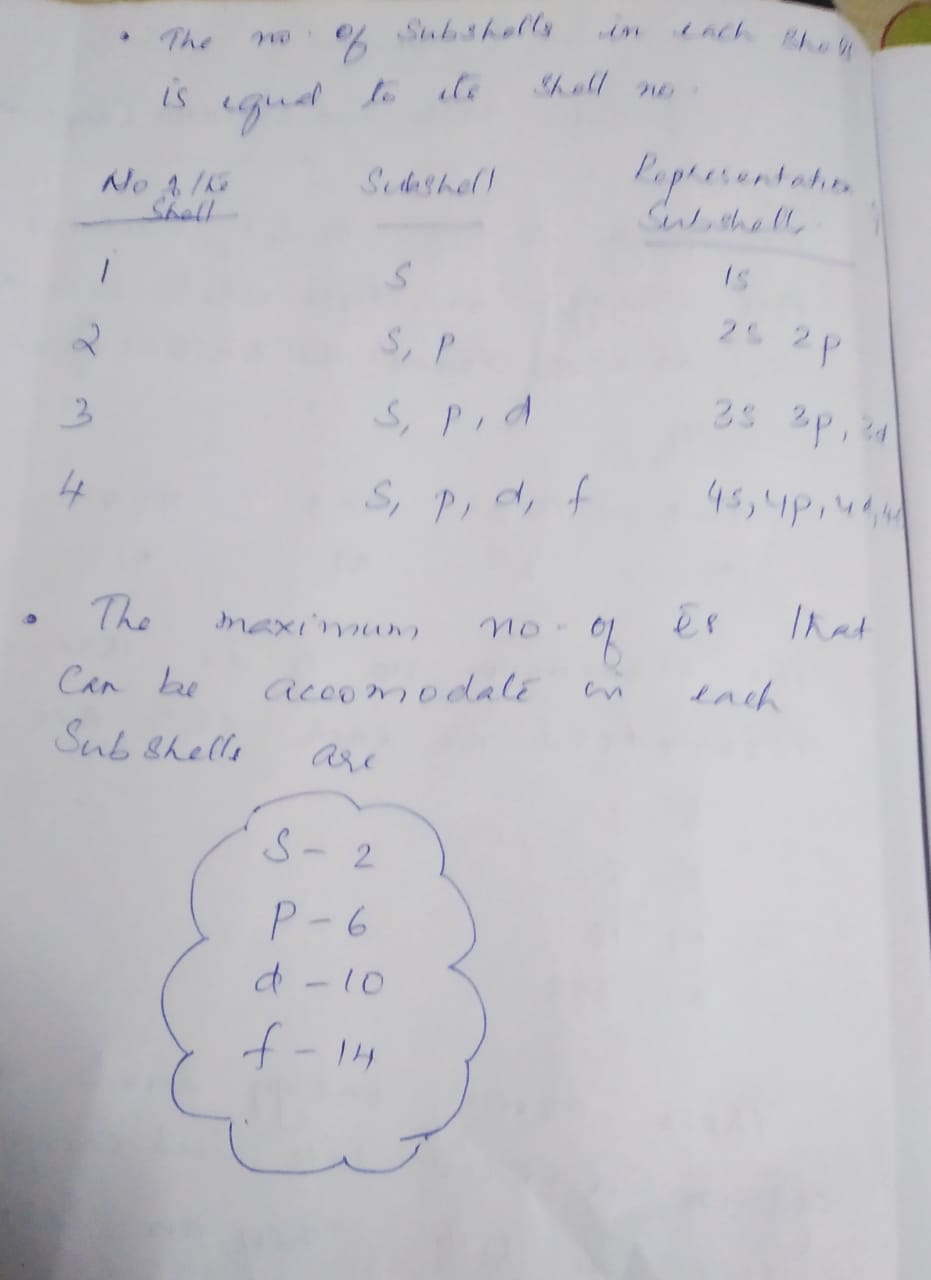 • The no. of Subshells in each Shell
is equal to its Shell no.
No of the Subshell Representation
Shell Subshells
1 S 1s
2 S, P 2s 2p
3 S, p, d 3s 3p, 3d
4 S, p, d, f 4s, 4p, 4d, 4f
• The maximum no. of ēs that
Can be accomodate in each
Subshells are
S - 2
P - 6
d - 10
f - 14